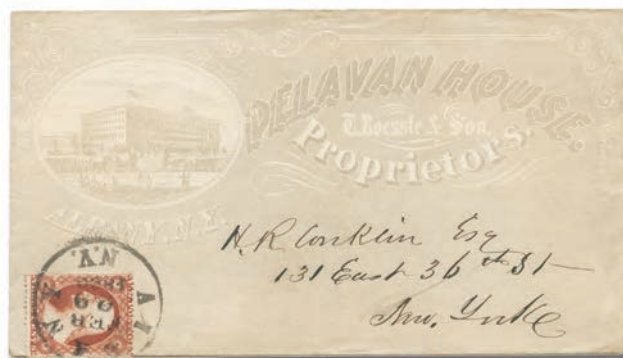 DELAVAN HOUSE.
T. Roessle & Son,
Proprietors.
ALBANY, N.Y.
H. R. Conklin Esq
131 East 36th St
New. York
N.Y.
FEB